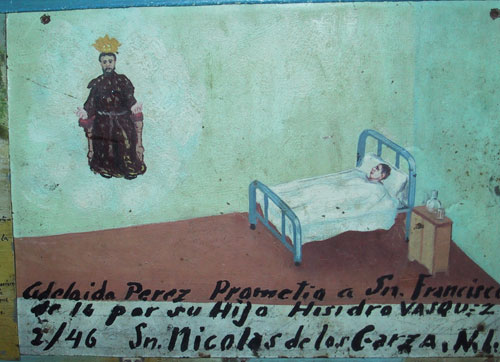 Adelaida Perez Prometio a Sn. Francisco
de 14 por su Hijo Hisidro VASQUEZ
2/46 Sn. Nicolas de los Garza. N.L